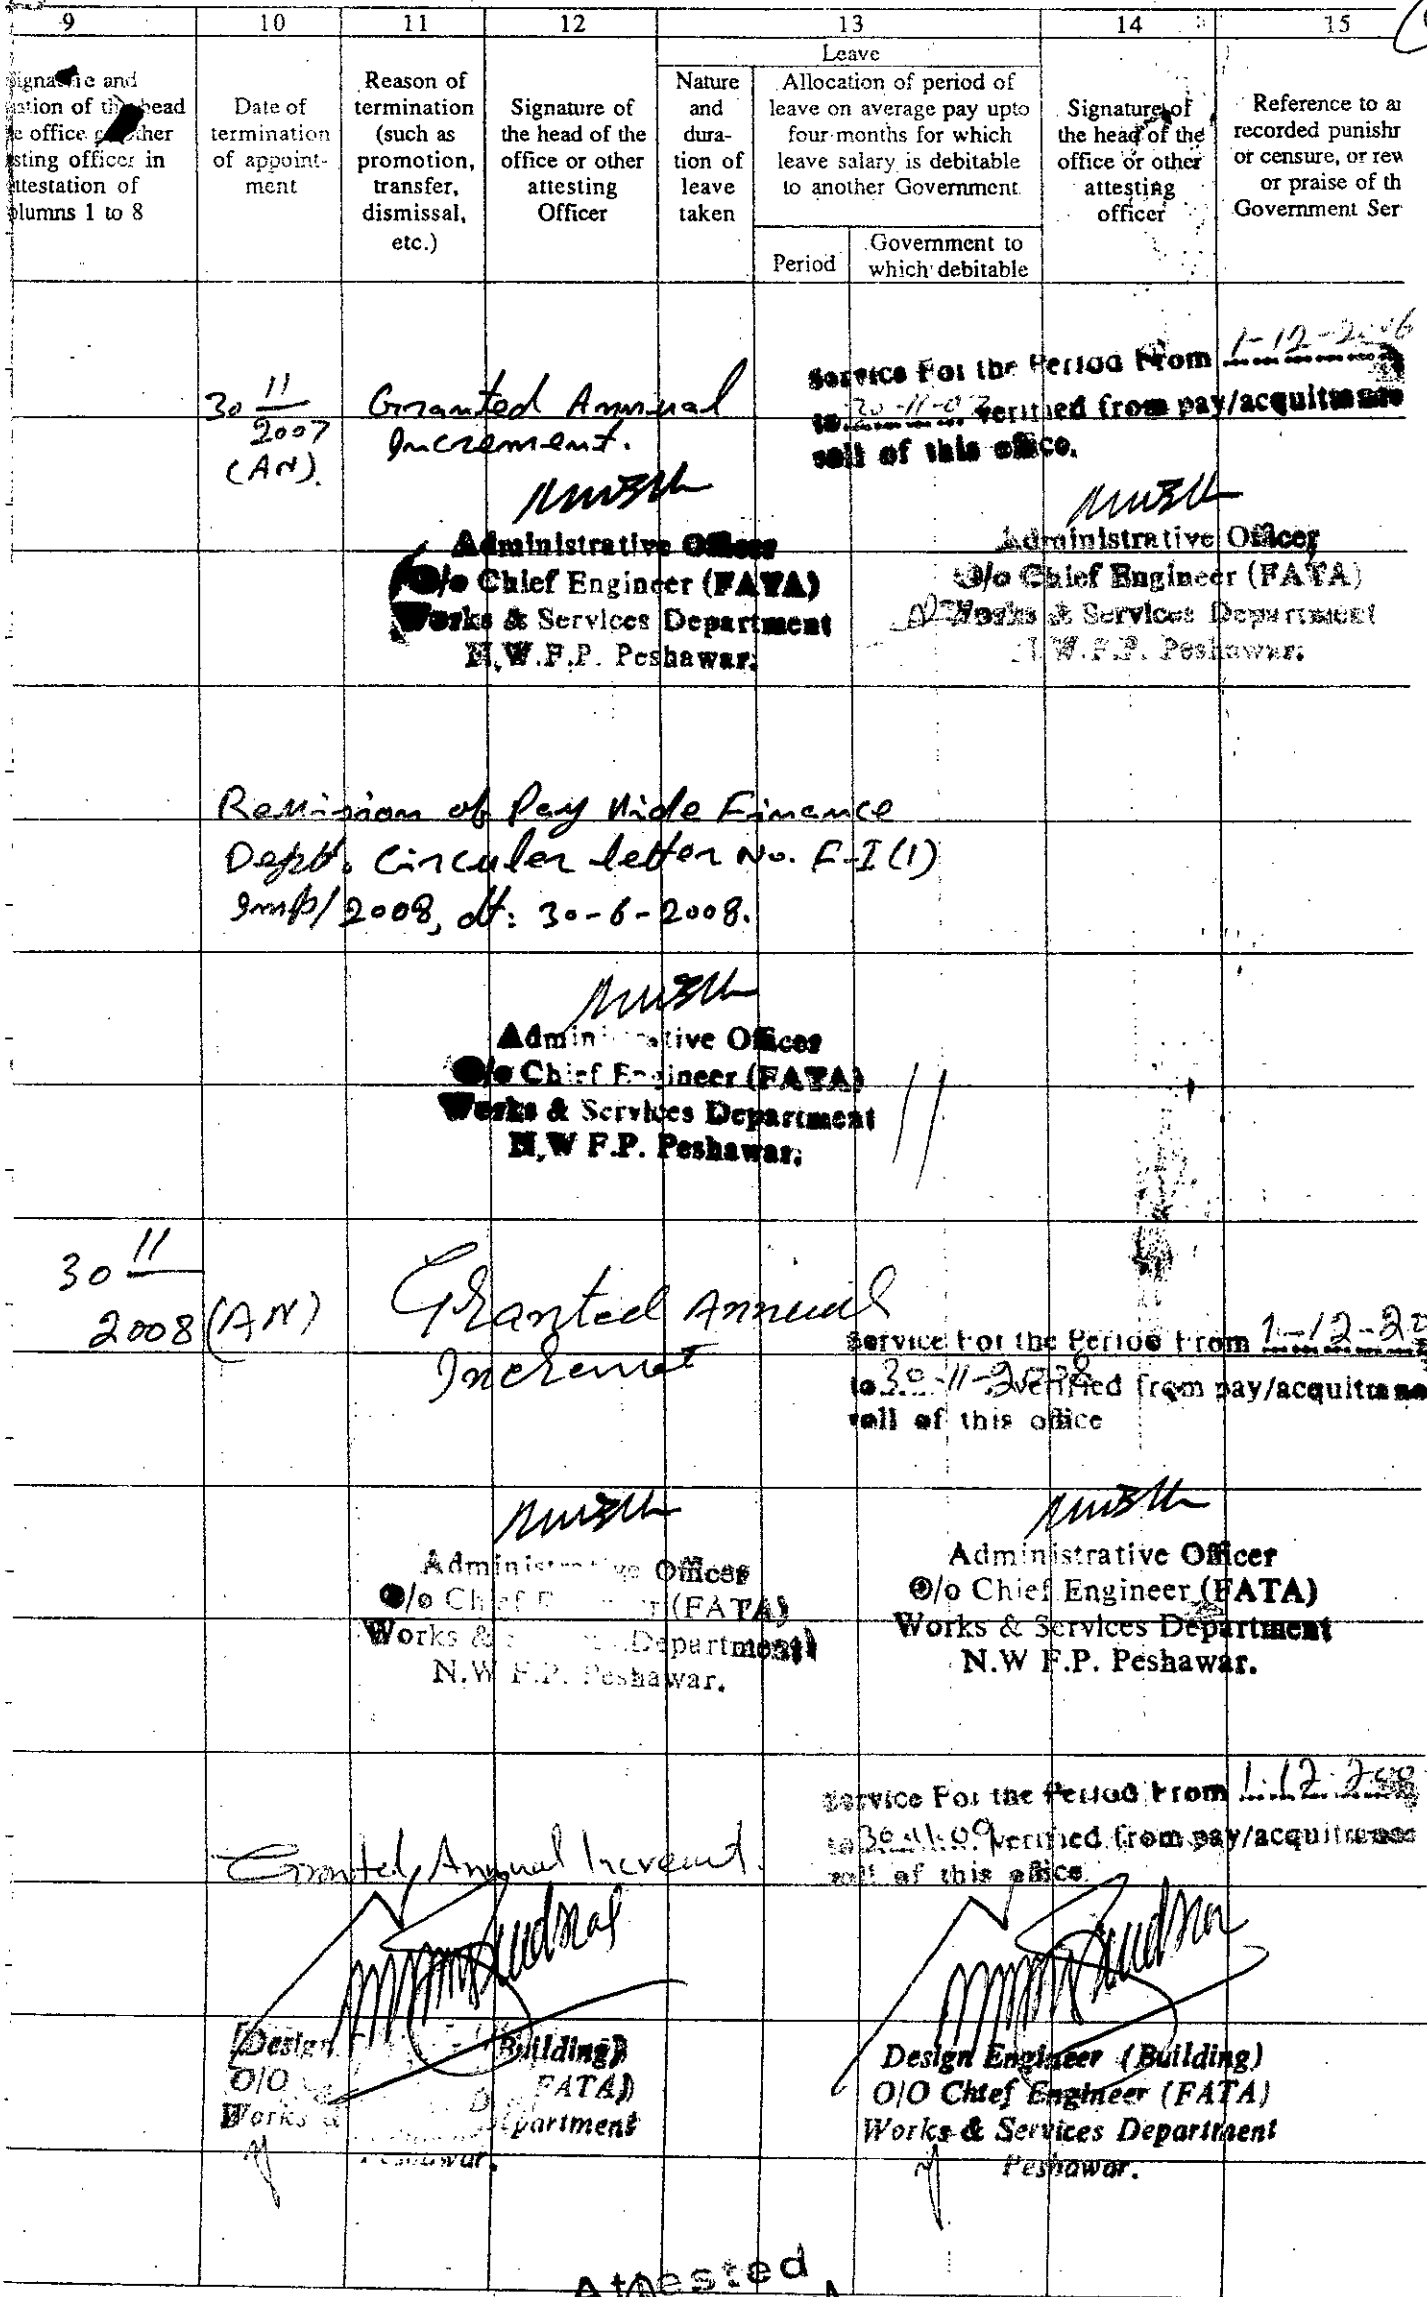 9 10 11 12 13 14 15
Leave
and
tion of the head
e office other
sting officer in
ttestation of
olumns 1 to 8
Date of
termination
of appoint-
ment
Reason of
termination
(such as
promotion,
transfer,
dismissal,
etc.)
Signature of
the head of the
office or other
attesting
Officer
Nature
and
dura-
tion of
leave
taken
Allocation of period of
leave on average pay upto
four months for which
leave salary is debitable
to another Government.
Period
Government to
which debitable
Signature of
the head of the
office or other
attesting
officer
Reference to a
recorded punishr
or censure, or rew
or praise of th
Government Ser
30 11
2007
(AN).
Granted Annual
Increment.
Service For the Period From 1-12-2006
to 30-11-07 verified from pay/acquittance
roll of this office.
Administrative Officer
O/o Chief Engineer (FATA)
Works & Services Department
N.W.F.P. Peshawar.
Administrative Officer
O/o Chief Engineer (FATA)
Works & Services Department
N.W.F.P. Peshawar.
Revision of Pay Vide Finance
Deptt. Circuler letter No. F-I(1)
Imp/2008, dt: 30-6-2008.
Administrative Officer
O/o Chief Engineer (FATA)
Works & Services Department
N.W F.P. Peshawar.
30 11
2008 (AN)
Granted Annual
Incremet
Service For the Period From 1-12-20
to 30-11-2008 verified from pay/acquittance
roll of this office
Administrative Officer
O/o Chief Engineer (FATA)
Works & Services Department
N.W F.P. Peshawar.
Administrative Officer
O/o Chief Engineer (FATA)
Works & Services Department
N.W F.P. Peshawar.
Service For the Period From 1.12.200
to 30.11.09 verified from pay/acquittance
roll of this office
Granted Annual Increment.
Design (Building)
O/O FATA)
Works & Department
Peshawar.
Design Engineer (Building)
O/O Chief Engineer (FATA)
Works & Services Department
Peshawar.
Attested